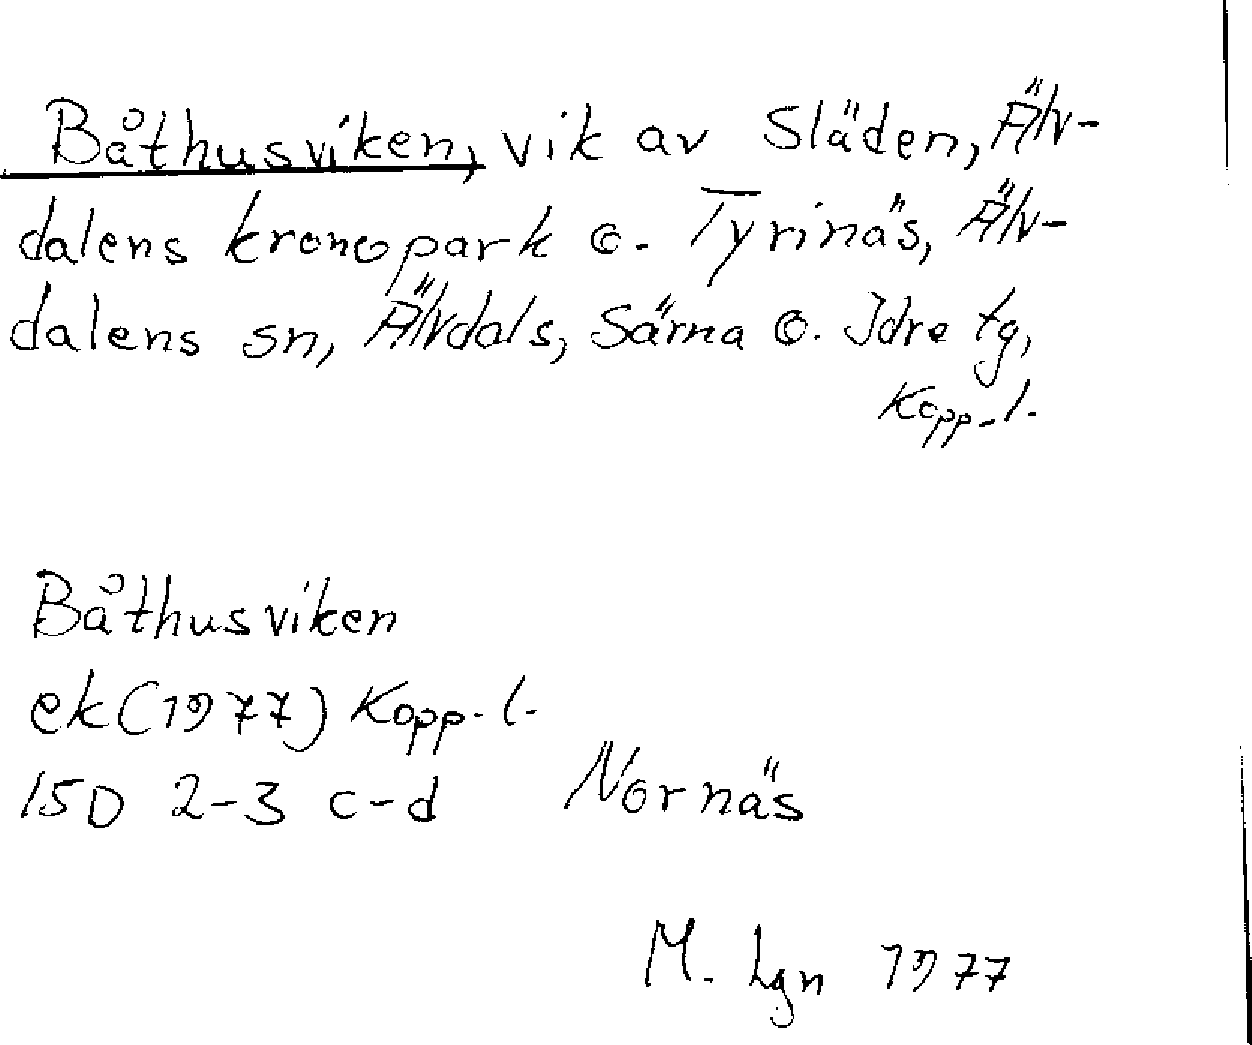 Båthusviken, vik av Släden, Älv-
dalens kronopark o. Tyrinäs, Älv-
dalens sn, Älvdals, Särna o. Idre tg,
Kopp. l.
Båthusviken
ek (1977) Kopp. l.
15D 2-3 c-d Nornäs
M. Lgn 1977